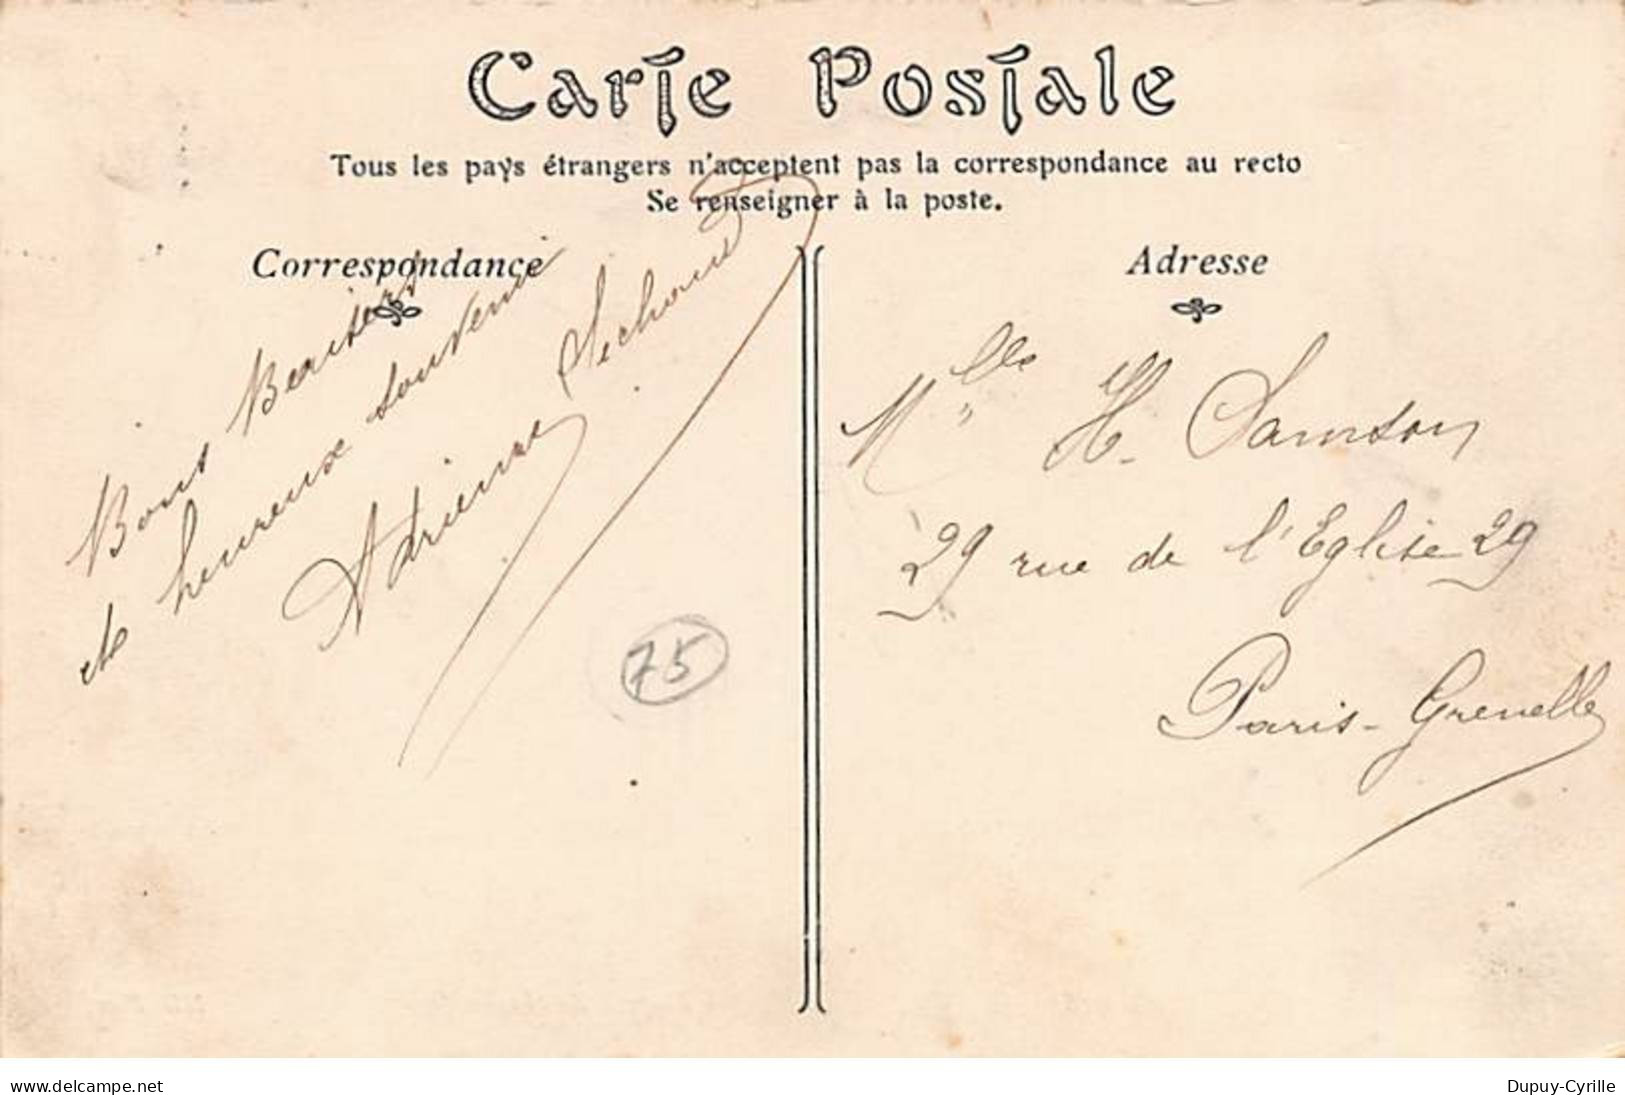 Carte Postale
Tous les pays étrangers n'acceptent pas la correspondance au recto
Se renseigner à la poste.
Correspondance
Bons Baisers
et heureux souvenir
Adrienne Sechaud
75
Adresse
Mlle H. Samson
29 rue de l'Eglise 29
Paris-Grenelle
www.delcampe.net
Dupuy-Cyrille